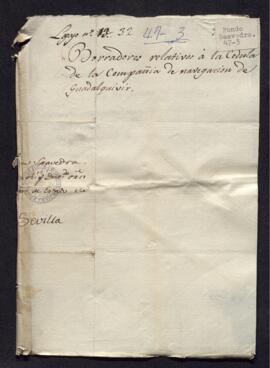 Legajo nº 13. 32
47-3
Fondo
Saavedra.
47-3
Borradores relativos à la Cedula
de la Compañia de navegacion de
Guadalquivir.
Saavedra.
Sevilla